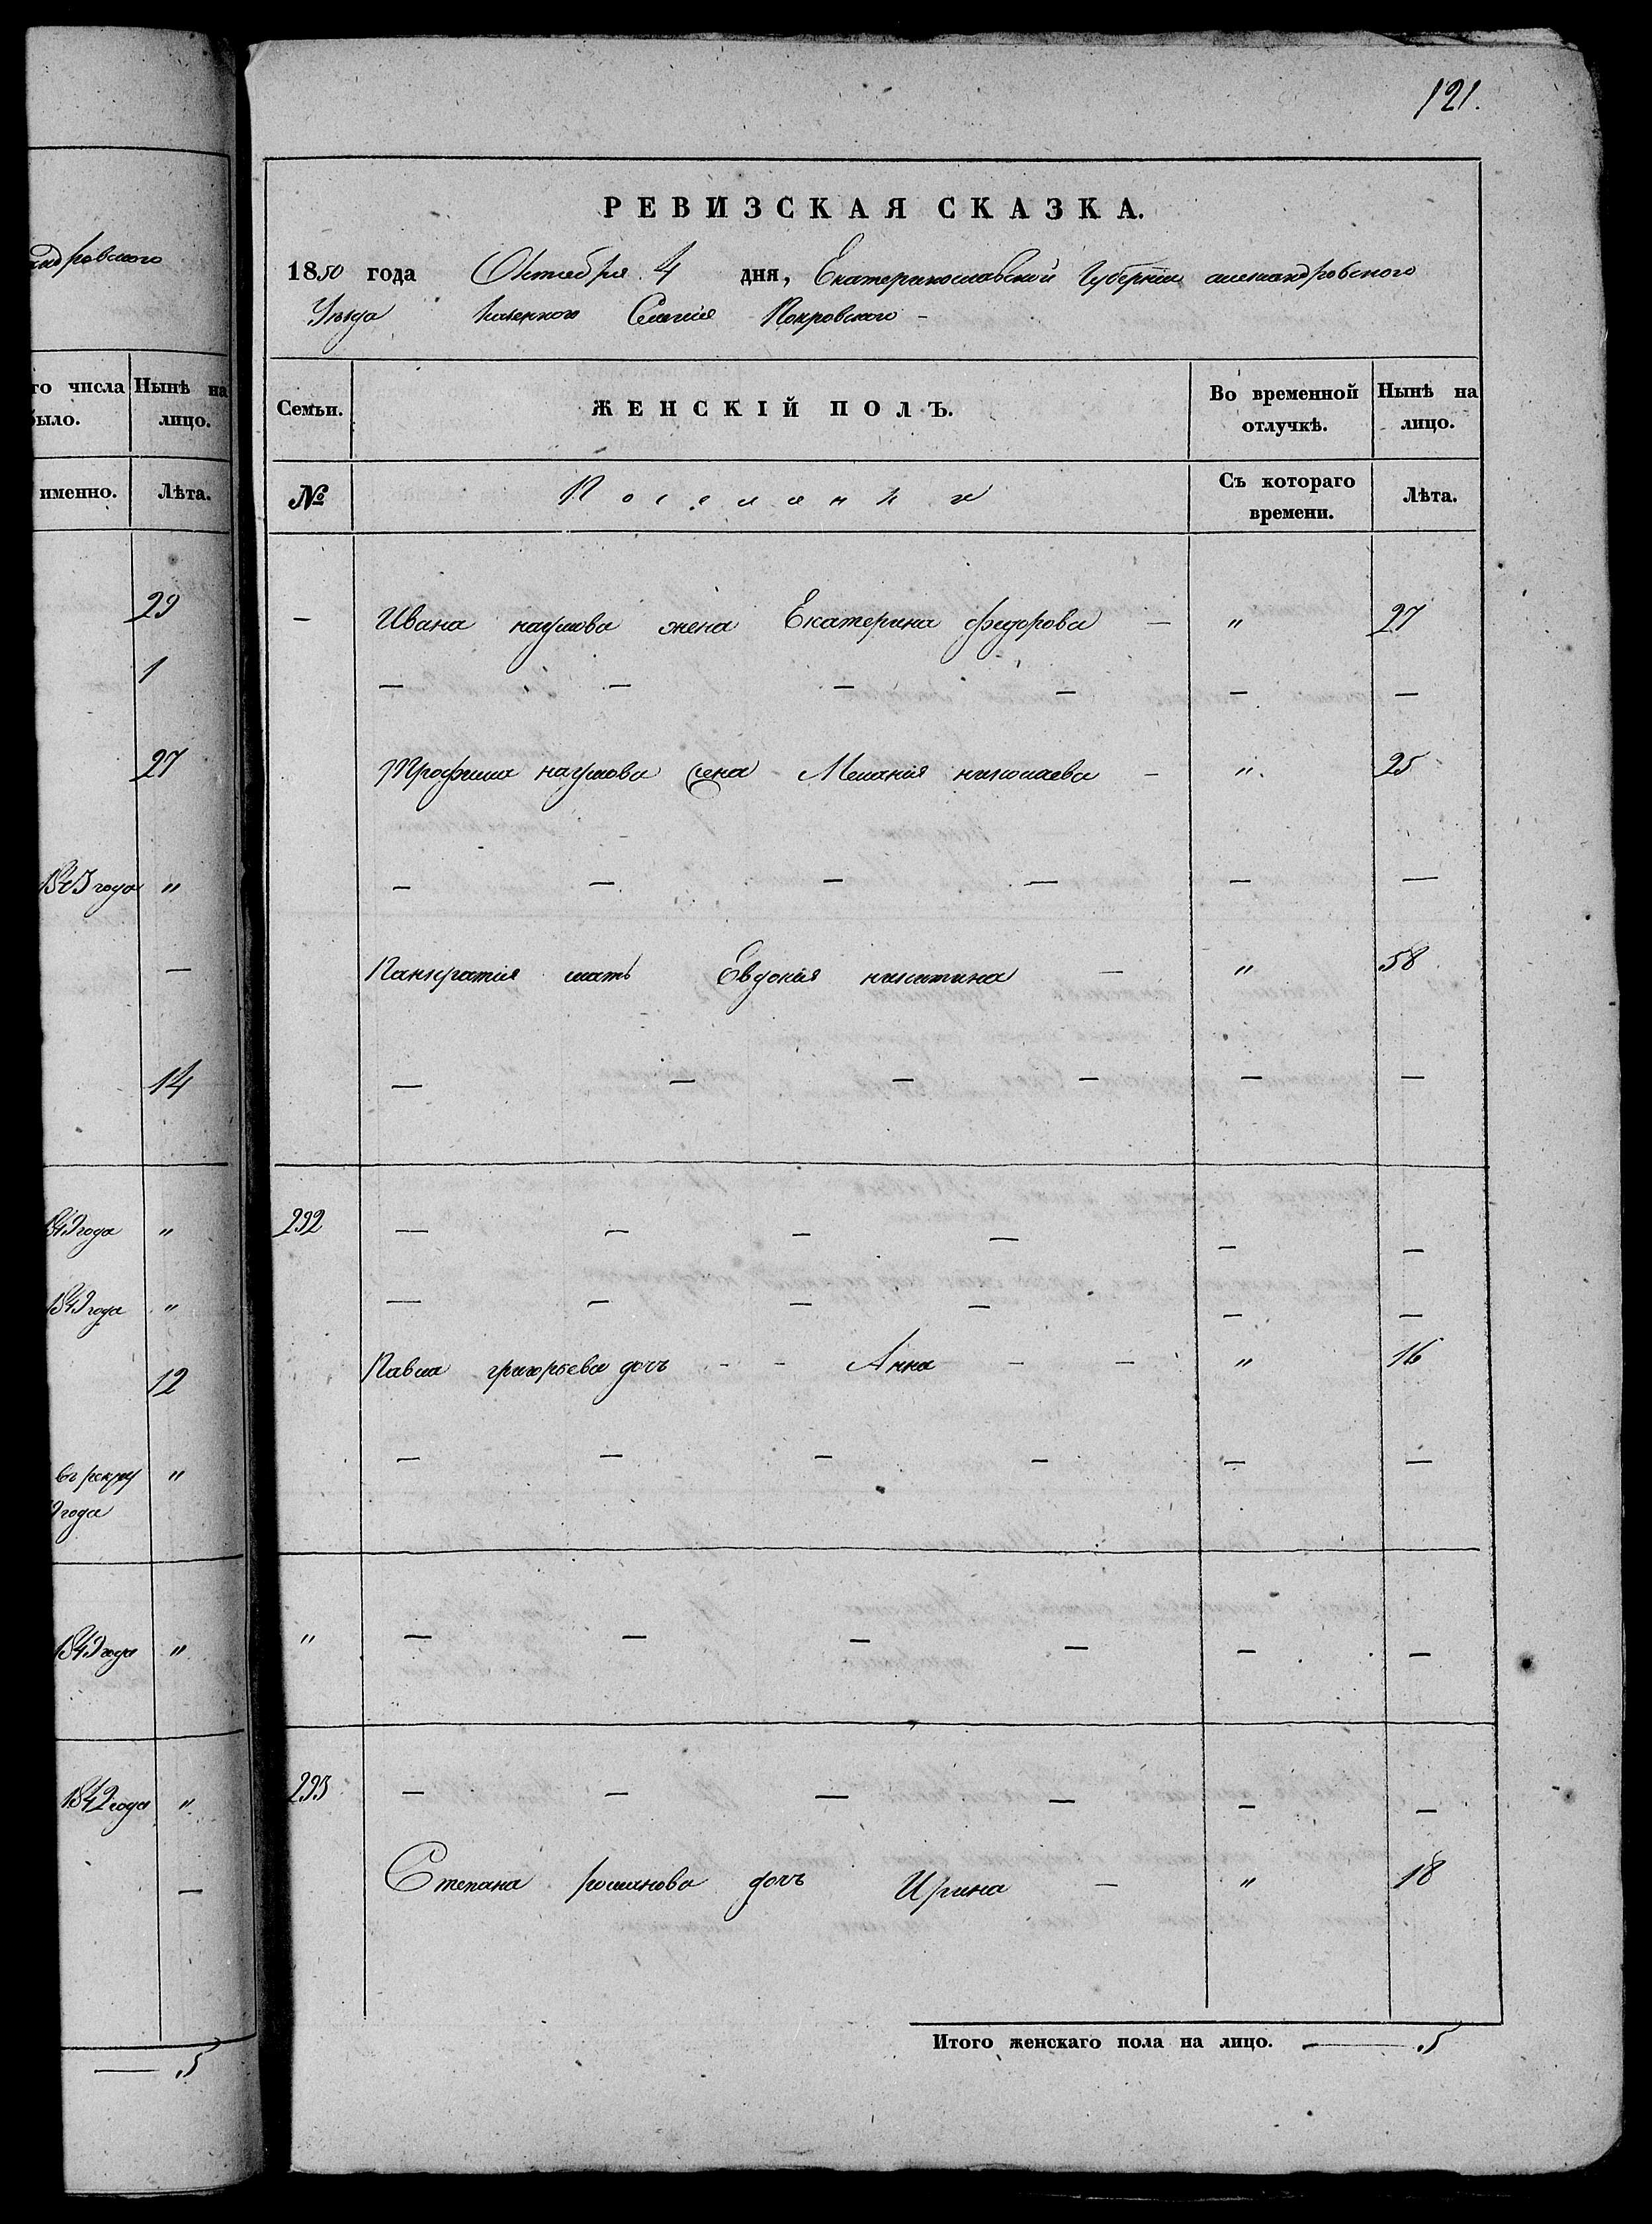 андровского
го числа было. Нынѣ на лицо.
именно. Лѣта.
29
1
27
1843 года "
—
14
1849 года "
1849 года "
12
въ рекру "
9 года
1849 года "
1842 года "
—
— 5
121.
РЕВИЗСКАЯ СКАЗКА.
1850 года Октября 4 дня, Екатеринославской Губерніи александровского
Уѣзда казенного Селенія Покровского –
Семьи. ЖЕНСКІЙ ПОЛЪ. Во временной отлучкѣ. Нынѣ на лицо.
№ Поселянки Съ котораго времени. Лѣта.
— Ивана наумова жена Екатерина федорова — " 27
— — — — — —
Трофима наумова жена Меланія николаева — " 25
— — — — — —
Панкратія мать Евдокія никитина — " 58
— — — — — —
292 — — — — — —
— — — — — —
Павла григорьева дочь - - Анна — — " 16
— — — — — —
" — — — — — —
293 — — — — — —
Степана романова дочь Ирина — " 18
Итого женскаго пола на лицо. — 5